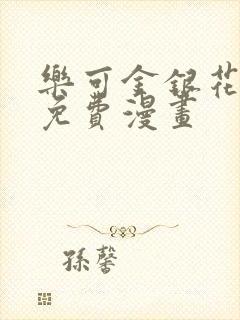 樂可金銀花
免費漫畫
孫馨